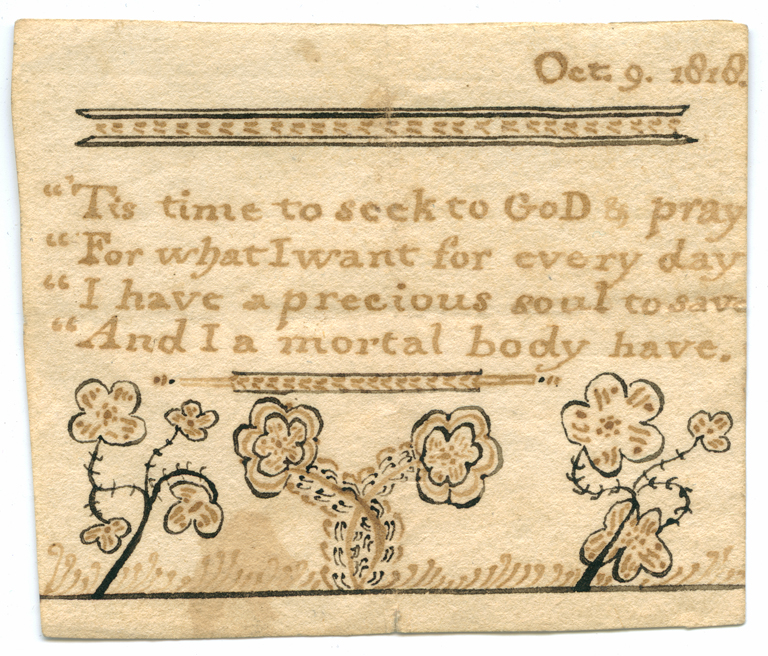 Oct. 9. 1818.
“'Tis time to seek to GoD & pray
“For what I want for every day
“I have a precious soul to save
“And I a mortal body have.